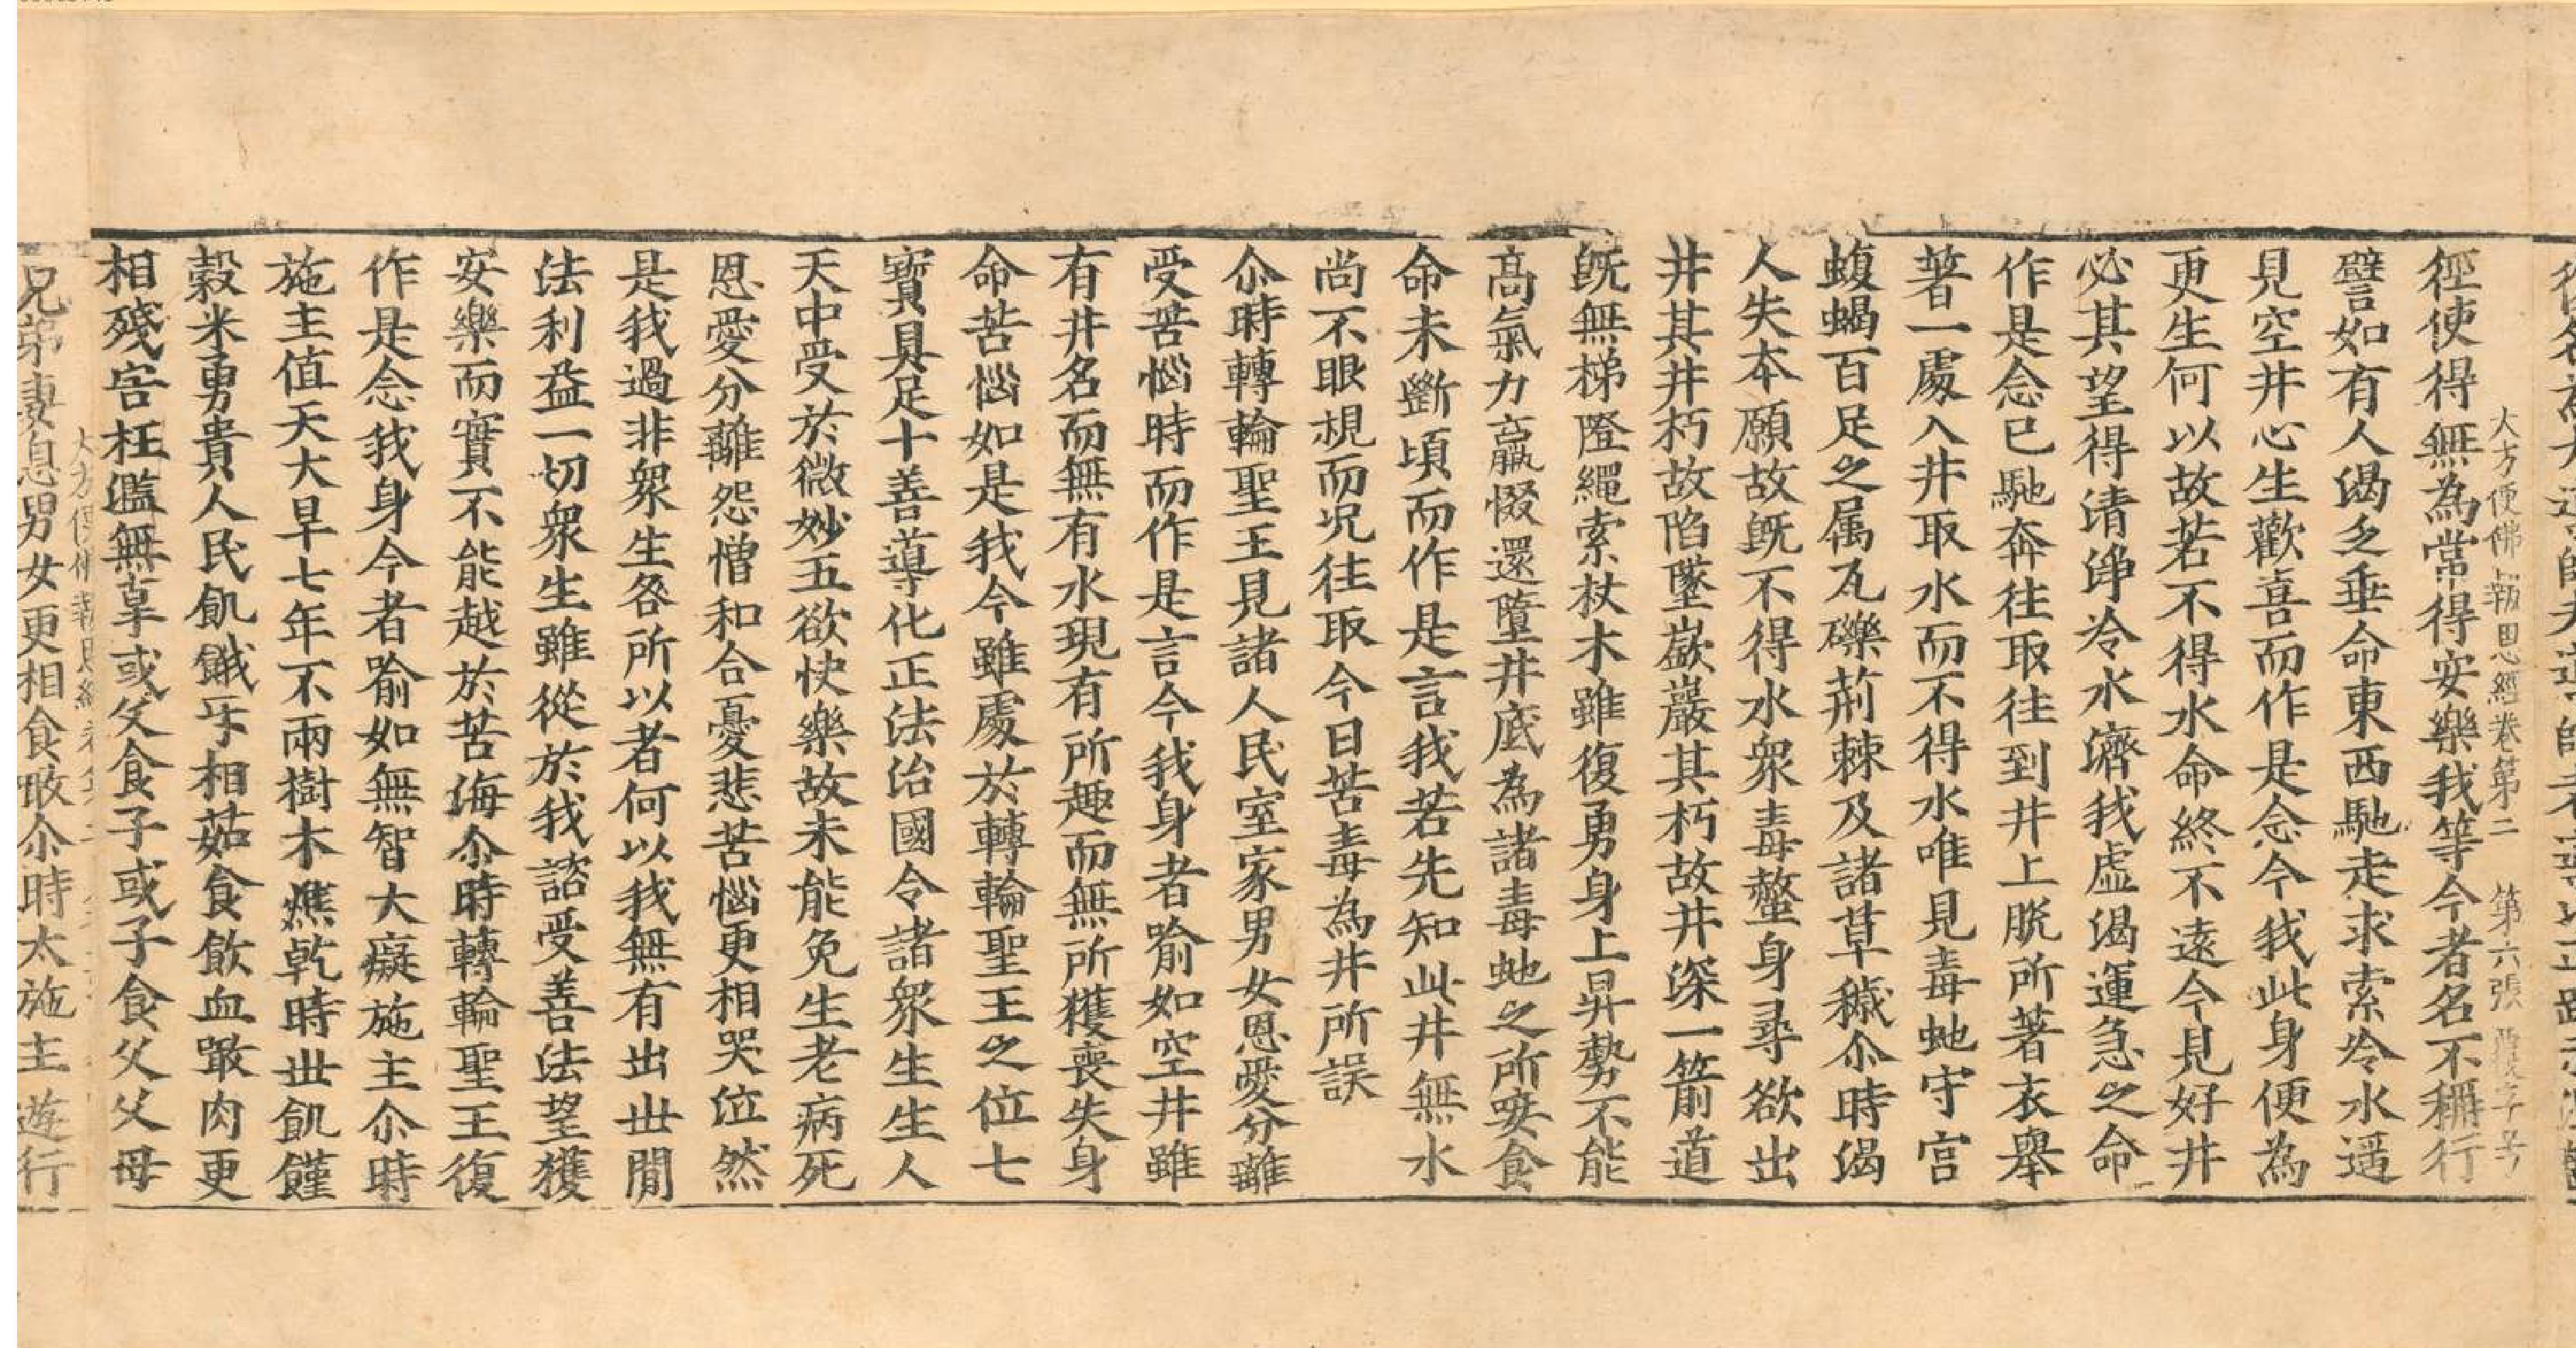 大方便佛報恩經卷第二　第六張
徑使得無為常得安樂我等今者名不稱行
譬如有人渴乏垂命東西馳走求索冷水遥
見空井心生歡喜而作是念今我此身便為
更生何以故若不得水命終不遠今見好井
必其望得清淨冷水濟我虛渴運急之命
作是念已馳奔往取往到井上脫所著衣舉
著一處入井取水而不得水唯見毒虵守宫
蝮蝎百足之属瓦礫荊棘及諸草穢尒時渴
人失本願故既不得水衆毒螫身尋欲出
井其井朽故陷墜嶽巖其朽故井深一箭道
既無梯隥繩索杖木雖復勇身上昇勢不能
髙氣力羸惙還墮井底為諸毒虵之所唼食
命未斷頃而作是言我若先知此井無水
尚不眼視而况往取今日苦毒為井所誤
尒時轉輪聖王見諸人民室家男女恩愛分離
受苦惱時而作是言今我身者喻如空井雖
有井名而無有水現有所趣而無所獲喪失身
命苦惱如是我今雖處於轉輪聖王之位七
寳具足十善導化正法治國令諸衆生生人
天中受於微妙五欲快樂故未能免生老病死
恩愛分離怨憎和合憂悲苦惱更相哭泣然
是我過非衆生咎所以者何以我無有出世間
法利益一切衆生雖從於我諮受善法望獲
安樂而實不能越於苦海尒時轉輪聖王復
作是念我身今者喻如無智大癡施主尒時
施主值天大旱七年不雨樹木燋乾時世飢饉
穀米勇貴人民飢餓乎相茹食飲血噉肉更
相殘害枉濫無辜或父食子或子食父父母
大方便佛報恩經
兄弟妻息男女更相食噉尒時太施主遊行